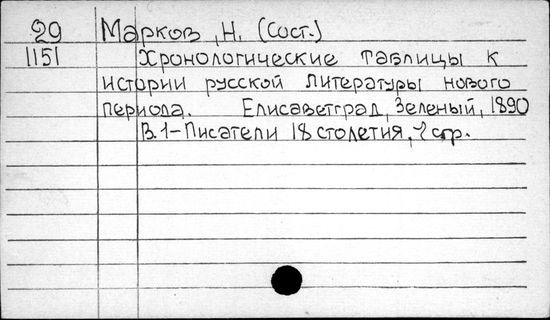 29 Марков, Н. (Сост.)
1151 Хронологические таблицы к
истории русской литературы нового
периода. Елисаветград, Зеленый, 1890
В.1-Писатели 18 столетия, стр.